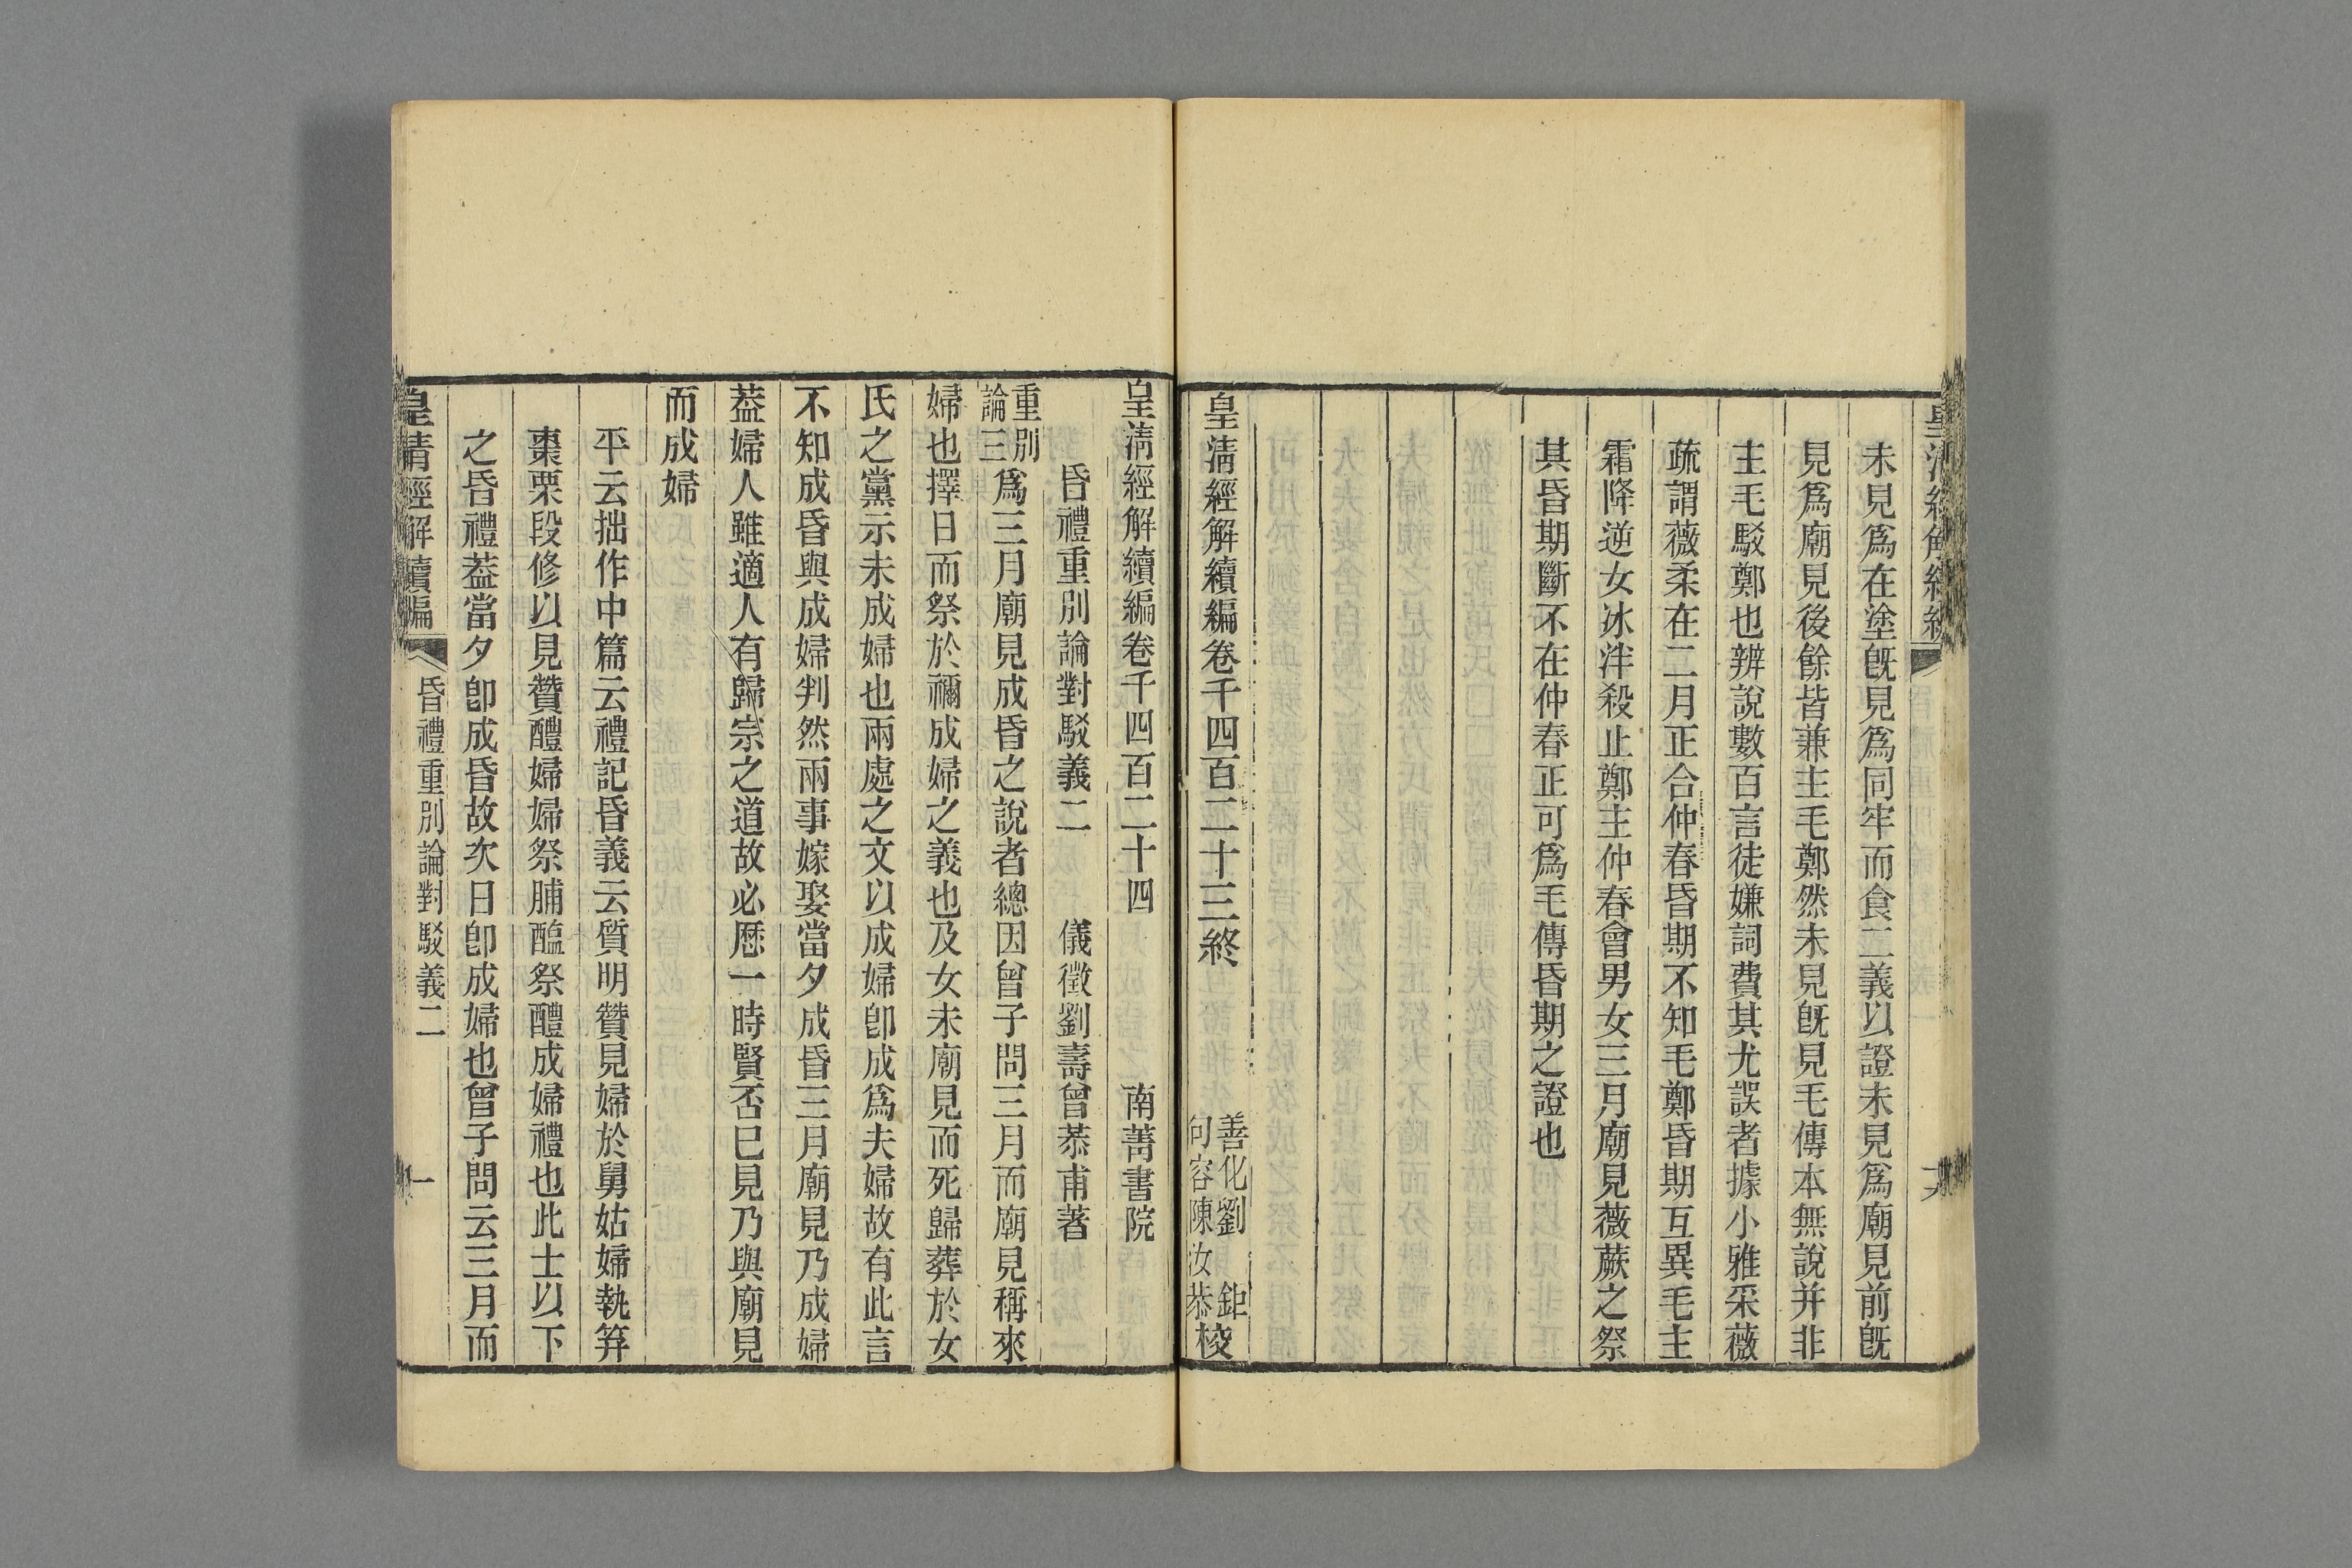 未見爲在塗旣見爲同牢而食二義以證未見爲廟見前旣
見爲廟見後餘皆兼主毛鄭然未見旣見毛傳本無說并非
主毛駁鄭也辨說數百言徒嫌詞費其尤誤者據小雅采薇
疏謂薇柔在二月正合仲春昏期不知毛鄭昏期互異毛主
霜降逆女冰泮殺止鄭主仲春會男女三月廟見薇蕨之祭
其昏期斷不在仲春正可爲毛傳昏期之證也
皇淸經解續編卷千四百二十三終
善化劉鉅
句容陳汝恭
校
皇淸經解續編卷千四百二十四
南菁書院
昏禮重別論對駁義二
儀徵劉壽曾恭甫著
重別
論三
爲三月廟見成昏之說者總因曾子問三月而廟見稱來
婦也擇日而祭於禰成婦之義也及女未廟見而死歸葬於女
氏之黨示未成婦也兩處之文以成婦卽成爲夫婦故有此言
不知成昏與成婦判然兩事嫁娶當夕成昏三月廟見乃成婦
葢婦人雖適人有歸宗之道故必厯一時賢否已見乃與廟見
而成婦
平云拙作中篇云禮記昏義云質明贊見婦於舅姑婦執笲
棗栗段修以見贊醴婦婦祭脯醢祭醴成婦禮也此士以下
之昏禮葢當夕卽成昏故次日卽成婦也曾子問云三月而
皇淸經解續編
昏禮重別論對駁義二
一